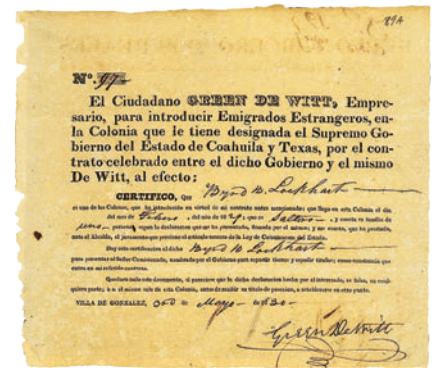 89A
Nº. 97
El Ciudadano GREEN DE WITT, Empre-
sario, para introducir Emigrados Estrangeros, en
la Colonia que le tiene designada el Supremo Go-
bierno del Estado de Coahuila y Texas, por el con-
trato celebrado entre el dicho Gobierno y el mismo
De Witt, al efecto:
CERTIFICO, Que Byrd B. Lockhart
es uno de los Colonos, que he introducido en virtud de mi contrato antes mencionado; que llego en esta Colonia el dia
del mes de Febrero, del año de 182 que es Soltero, y consta su familia de
uno personas, segun la declaracion que me ha presentado, firmada por el mismo; y me consta, que ha prestado,
ante el Alcalde, el juramento que previene el articulo tercero de la Ley de Colonizacion del Estado.
Doy este certificacion al dicho Byrd B. Lockhart
para presentar al Señor Comisionado, nombrado por el Gobierno para repartir tierras y espedir titulos; como constancia que
entra en mi referido contrato.
Quedará nulo este documento, si pareciere que la dicha declaracion hecha por el interesado, es falsa, en cual
quiera parte; ó si el mismo sale de esta Colonia, antes de recibir su titulo de posesion, a establecerse en otro punto.
VILLA DE GONZALEZ, 3 de Mayo 1830
Green DeWitt